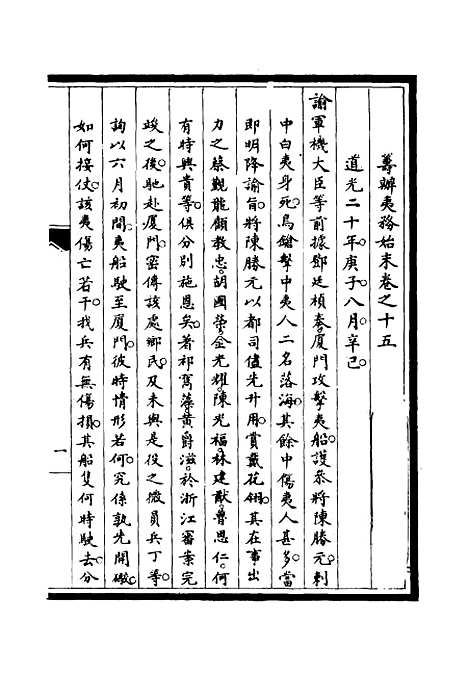 籌辦夷務始末卷之十五
道光二十年庚子八月辛巳
諭軍機大臣等前據鄧廷楨奏廈門攻擊夷船護參將陳勝元刺
中白夷身死鳥鎗擊中夷人二名落海其餘中傷夷人甚多當
即明降諭旨將陳勝元以都司儘先升用賞戴花翎其在事出
力之蔡覲龍顧教忠胡國榮金光耀陳光福林建猷曾恩仁何
有時興貴等俱分別施恩矣著祁寯藻黃爵滋於浙江審案完
竣之後馳赴廈門密傳該處鄉民及未與是役之微員兵丁等
詢以六月初間夷船駛至廈門彼時情形若何究係孰先開礮
如何接仗該夷傷亡若干我兵有無傷損其船隻何時駛去分
一